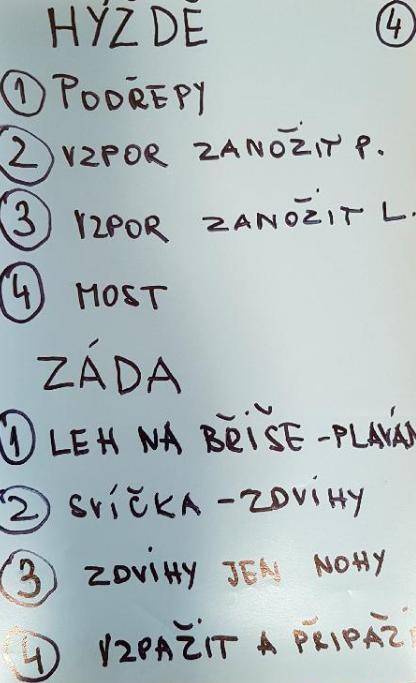 HÝŽDĚ 4
1 PODŘEPY
2 VZPOR ZANOŽIT P.
3 VZPOR ZANOŽIT L.
4 MOST
ZÁDA
1 LEH NA BŘIŠE - PLAVÁN
2 SVÍČKA - ZDVIHY
3 ZDVIHY JEN NOHY
4 VZPAŽIT A PŘIPAŽI